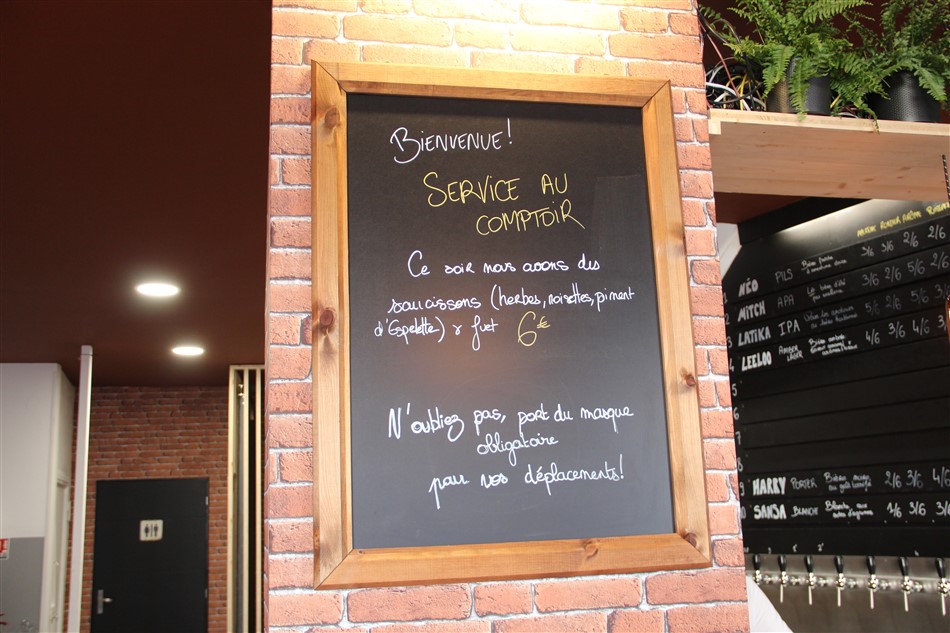 BIENVENUE!
SERVICE AU
COMPTOIR
Ce soir nous avons des
saucissons (herbes, noisettes, piment
d'Espelette) & fuet 6€
N'oubliez pas, port du masque
obligatoire
pour vos déplacements!
NÉO PILS 3/6 3/6 2/6 2/6
MITCH APA 3/6 2/6 5/6 2/6
LATIKA IPA
LEELOO AMBER LAGER 4/6 3/6 4/6
HARRY PORTER 2/6 3/6
SANSA BLANCHE 1/6 3/6